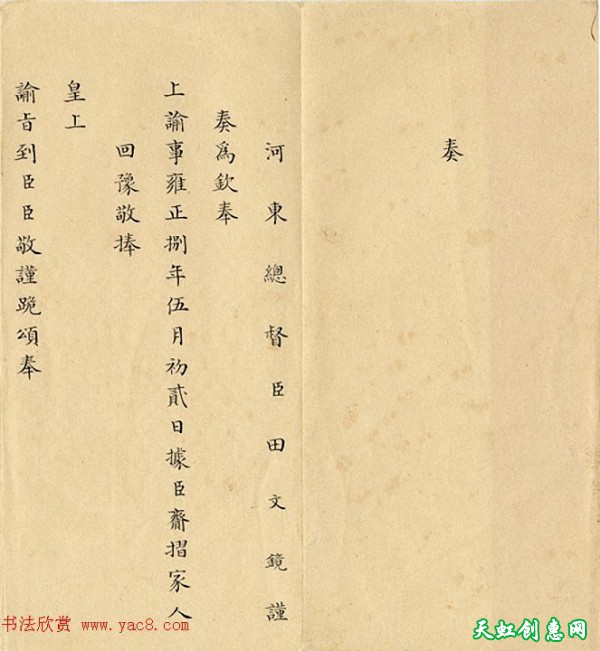 奏
河東總督臣田文鏡謹
奏爲欽奉
上諭事雍正捌年伍月初貳日據臣齎摺家人
回豫敬捧
皇上
諭旨到臣臣敬謹跪頌奉
书法欣赏 www.yac8.com
天虹创惠网